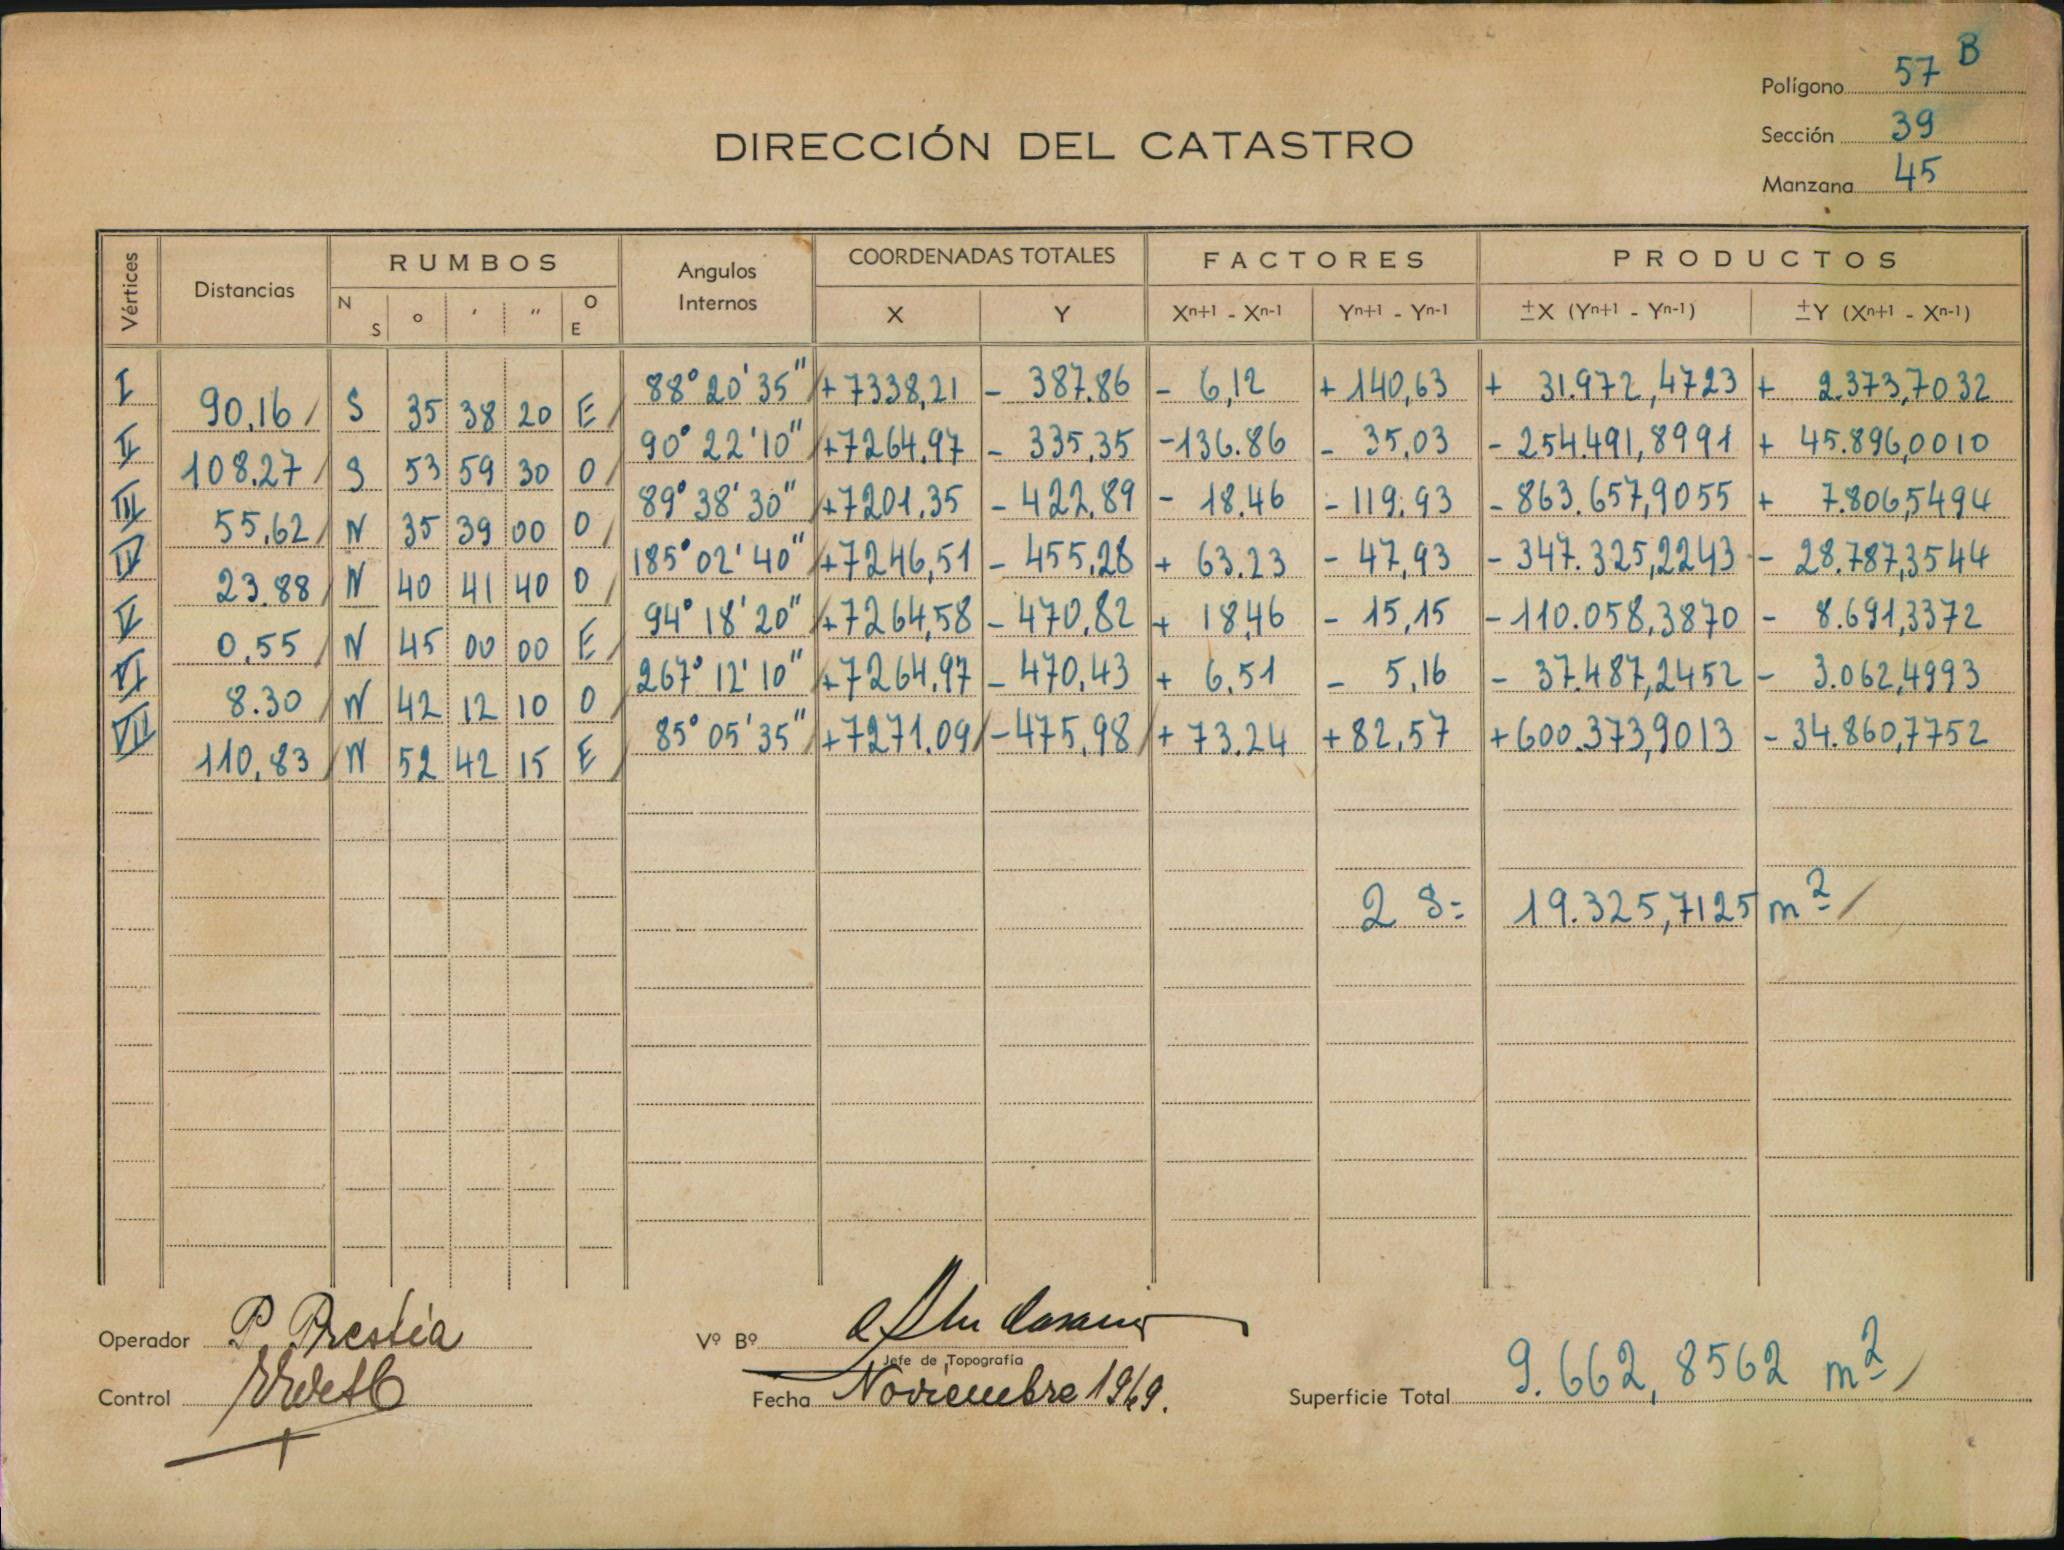 Polígono 57 B
DIRECCIÓN DEL CATASTRO
Sección 39
Manzana 45
Vértices Distancias RUMBOS Angulos Internos COORDENADAS TOTALES FACTORES PRODUCTOS
N S ° ' " O E X Y Xn+1 - Xn-1 Yn+1 - Yn-1 ±X (Yn+1 - Yn-1) ±Y (Xn+1 - Xn-1)
I 90,16 S 35 38 20 E 88° 20' 35" +7338,21 - 387.86 - 6,12 + 140,63 + 31.972,4723 + 2.373,7032
II 108.27 S 53 59 30 O 90° 22' 10" +7264.97 - 335,35 -136.86 - 35,03 - 254.491,8991 + 45.896,0010
III 55,62 N 35 39 00 O 89° 38' 30" +7201.35 - 422,89 - 18.46 - 119,93 - 863.657,9055 + 7.806,5494
IV 23.88 N 40 41 40 O 185° 02' 40" +7246,51 - 455,28 + 63.23 - 47,93 - 347.325,2243 - 28.787,3544
V 0,55 N 45 00 00 E 94° 18' 20" +7264,58 - 470,82 + 18,46 - 15,15 - 110.058,3870 - 8.691,3372
VI 8.30 N 42 12 10 O 267° 12' 10" +7264,97 - 470,43 + 6,51 - 5,16 - 37.487,2452 - 3.062,4993
VII 110,83 N 52 42 15 E 85° 05' 35" +7271.09 -475,98 + 73.24 +82,57 +600.373,9013 - 34.860,7752
2 S= 19.325,7125 m²
Operador P. Prestia
Vº Bº
Jefe de Topografía
Control
Fecha Noviembre 1969.
Superficie Total 9.662,8562 m²